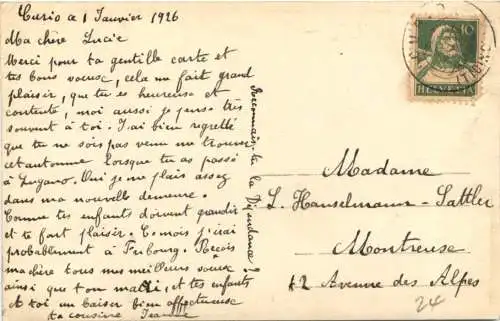 Curio a 1 Janvier 1926
Ma chère Lucie
Merci pour ta gentille carte et
tes bons voeux, cela me fait grand
plaisir, que tu es heureuse et
contente, moi aussi je pense très
souvent à toi. J'ai bien regretté
que tu ne sois pas venu me trouver
cet automne lorsque tu as passé
à Lugano. Oui je me plais assez
dans ma nouvelle demeure.
Comme tes enfants doivent grandir
et te font plaisir. Ce mois j'irai
probablement à Fribourg. Reçois
ma chère tous mes meilleurs voeux
ainsi que ton mari et tes enfants
et toi un baiser bien affectueuse
ta cousine Jeanne
Reconnais-tu la Difendana?
10
HELVETIA
Madame
L. Hanselmann-Sattler
Montreuse
42 Avenue des Alpes
24